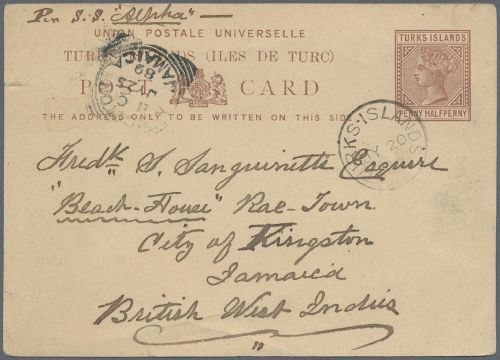 Per S.S. "Alpha" —
UNION POSTALE UNIVERSELLE
TURKS ISLANDS (ILES DE TURC)
POST CARD
THE ADDRESS ONLY TO BE WRITTEN ON THIS SIDE
TURKS ISLANDS
PENNY HALFPENNY
JAMAICA
89
TURKS-ISLANDS
20
Fredk S. Sanguinette Esquire
"Beach-House" Rae-Town.
City of Kingston
Jamaica
British West Indies